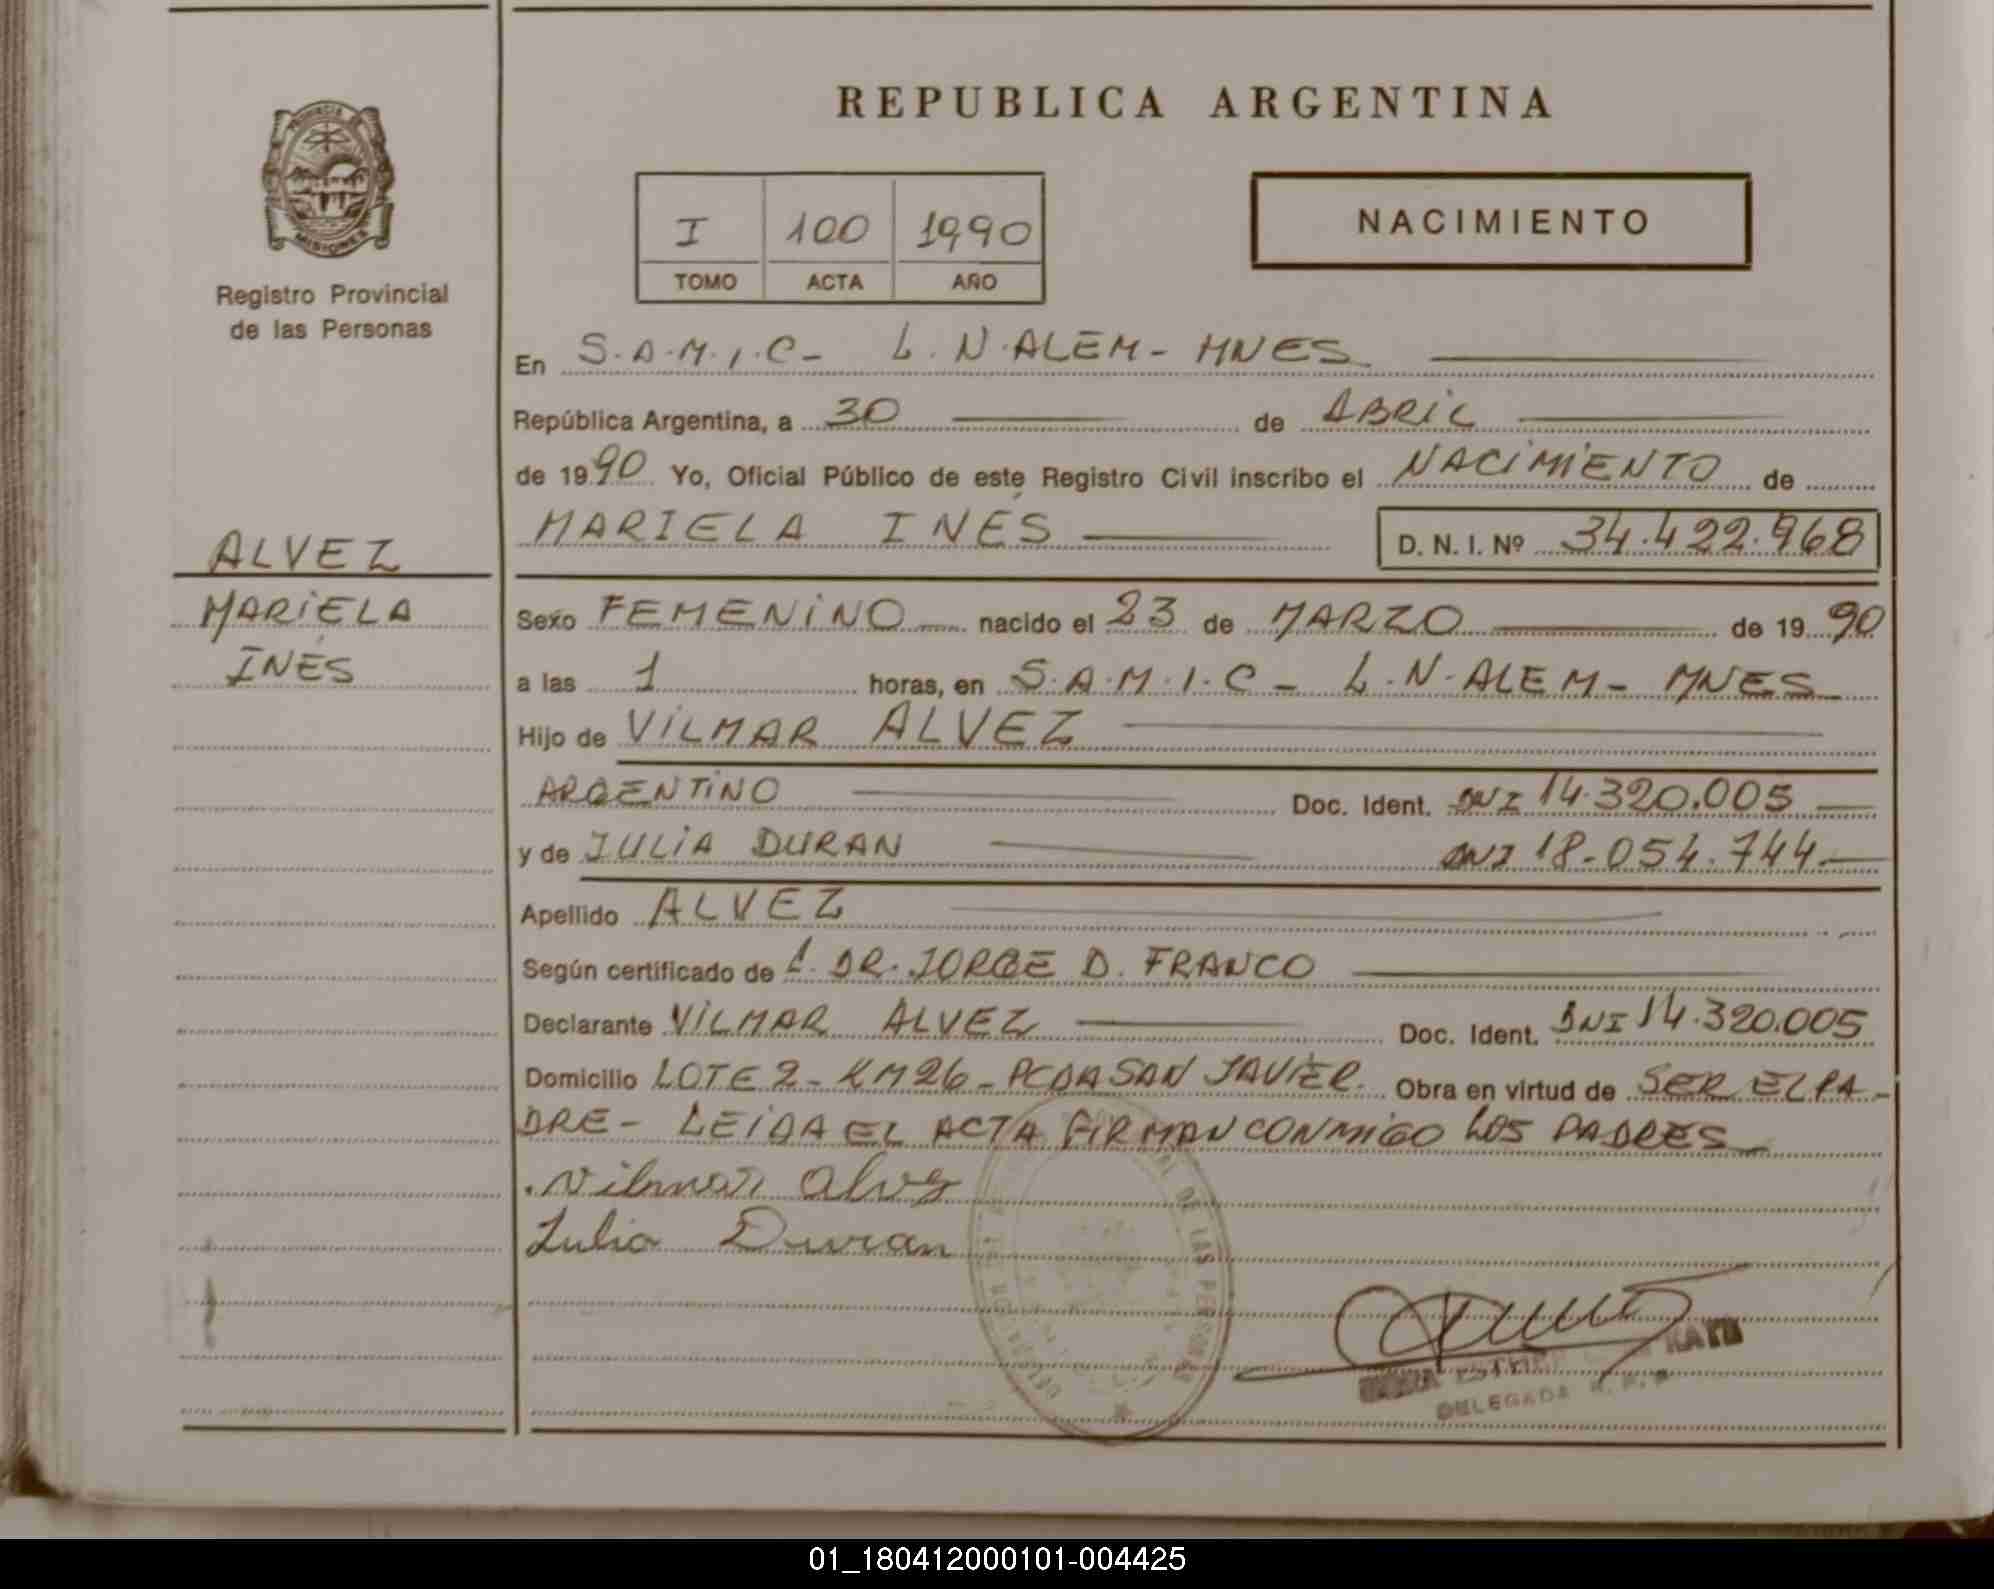 REPUBLICA ARGENTINA
PROVINCIA
MISIONES
Registro Provincial
de las Personas
I 100 1990
TOMO ACTA AÑO
NACIMIENTO
En S.A.M.I.C- L.N.ALEM- MNES
República Argentina, a 30 de ABRIL
de 1990 Yo, Oficial Público de este Registro Civil inscribo el NACIMIENTO de
MARIELA INÉS D. N. I. Nº 34.422.968
ALVEZ
MARIELA
INÉS
Sexo FEMENINO nacido el 23 de MARZO de 1990
a las 1 horas, en S.A.M.I.C- L.N-ALEM- MNES
Hijo de VILMAR ALVEZ
ARGENTINO Doc. Ident. DNI 14.320.005
y de JULIA DURAN DNI 18.054.744
Apellido ALVEZ
Según certificado de DR. JORGE D. FRANCO
Declarante VILMAR ALVEZ Doc. Ident. DNI 14.320.005
Domicilio LOTE 2- KM26- PCDA SAN JAVIER. Obra en virtud de SER EL PA-
DRE- LEIDA EL ACTA FIRMAN CONMIGO LOS PADRES
Vilmar Alvez
Julia Duran
DE LAS PERSONAS
ESTHER
DELEGADA R. P. P
01_180412000101-004425